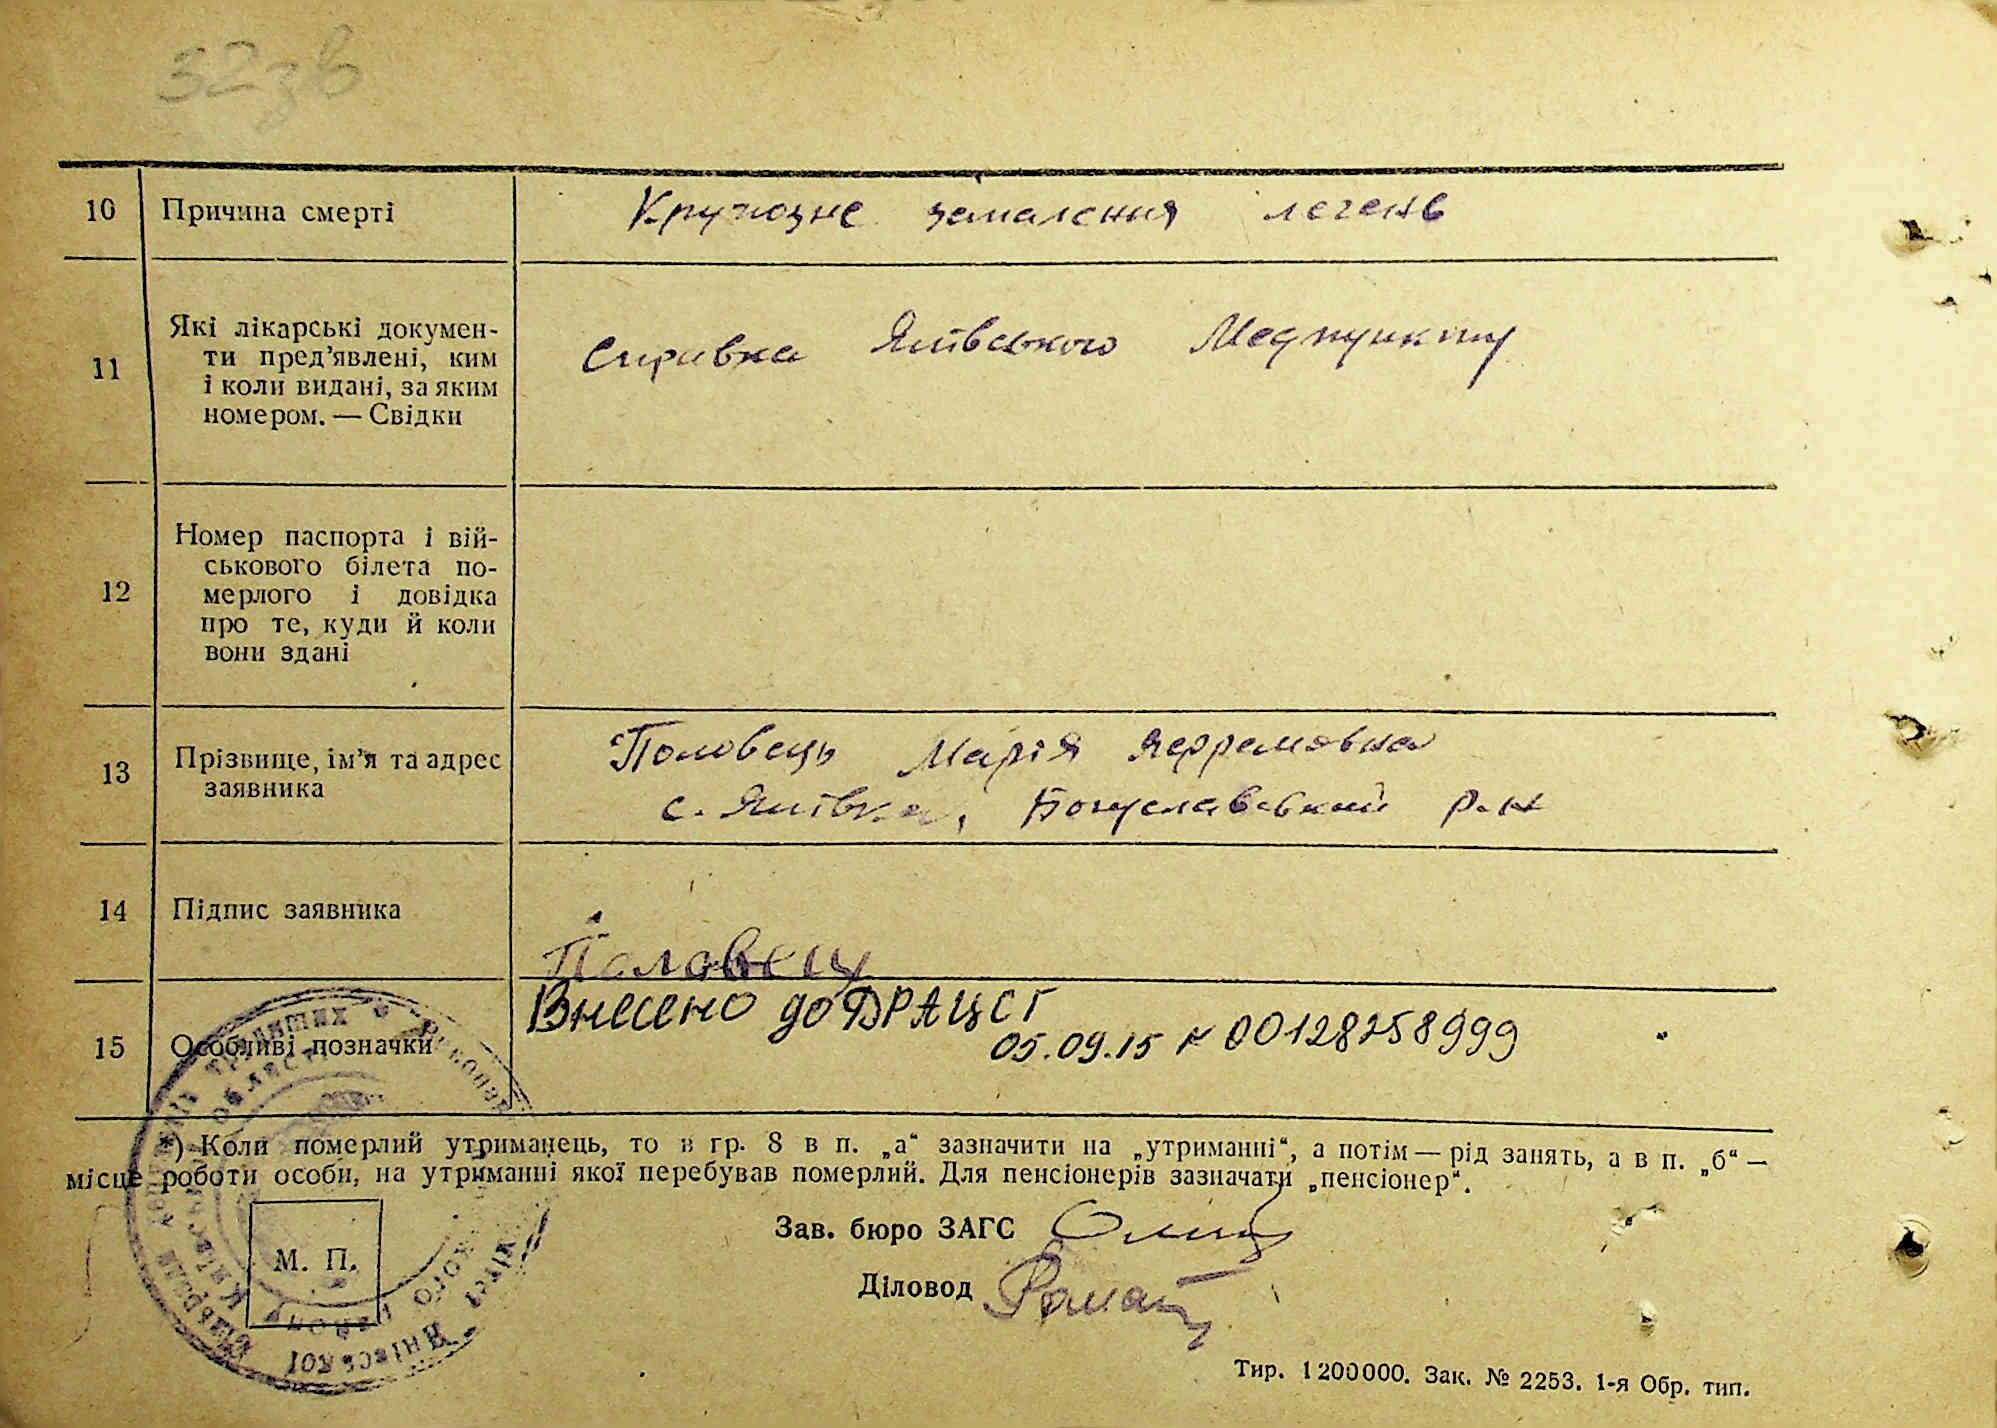 32зв
10 Причина смерті Крупозне запалення легень
11 Які лікарські докумен-
ти пред’явлені, ким
і коли видані, за яким
номером. — Свідки
Справка Яхівського Медпункту
12 Номер паспорта і вій-
ськового білета по-
мерлого і довідка
про те, куди й коли
вони здані
13 Прізвище, ім’я та адрес
заявника
Половець Марія
с. Богуславський р-н
14 Підпис заявника
Половець
15 Особливі позначки
Внесено до ДРАЦСГ
05.09.15 № 00128258999
*) Коли померлий утриманець, то в гр. 8 в п. „а“ зазначити на „утриманні“, а потім — рід занять, а в п. „б“ —
місце роботи особи, на утриманні якої перебував померлий. Для пенсіонерів зазначати „пенсіонер“.
Зав. бюро ЗАГС
М. П.
Діловод
Тир. 1200000. Зак. № 2253. 1-я Обр. тип.